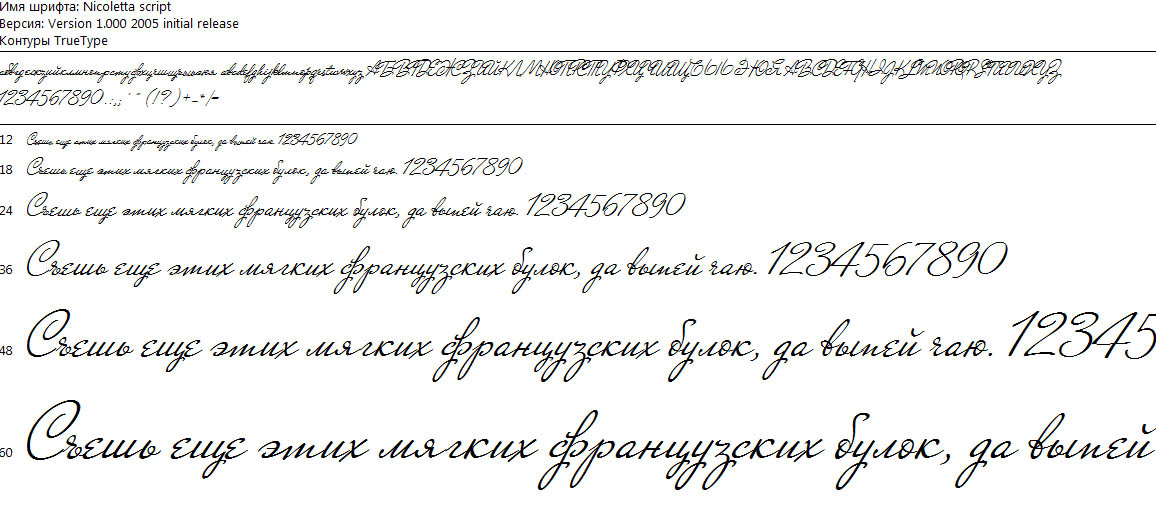 Имя шрифта: Nicoletta script
Версия: Version 1.000 2005 initial release
Контуры TrueType
абвгдежзийклмнопрстуфхцчшщъыьэюя abcdefghijklmnopqrstuvwxyz АБВГДЕЖЗИЙКЛМНОПРСТУФХЦЧШЩЪЫЬЭЮЯ ABCDEFGHIJKLMNOPQRSTUVWXYZ
1234567890.:,; ' " (!?) +-*/=
12 Съешь еще этих мягких французских булок, да выпей чаю. 1234567890
18 Съешь еще этих мягких французских булок, да выпей чаю. 1234567890
24 Съешь еще этих мягких французских булок, да выпей чаю. 1234567890
36 Съешь еще этих мягких французских булок, да выпей чаю. 1234567890
48 Съешь еще этих мягких французских булок, да выпей чаю. 12345
60 Съешь еще этих мягких французских булок, да выпей